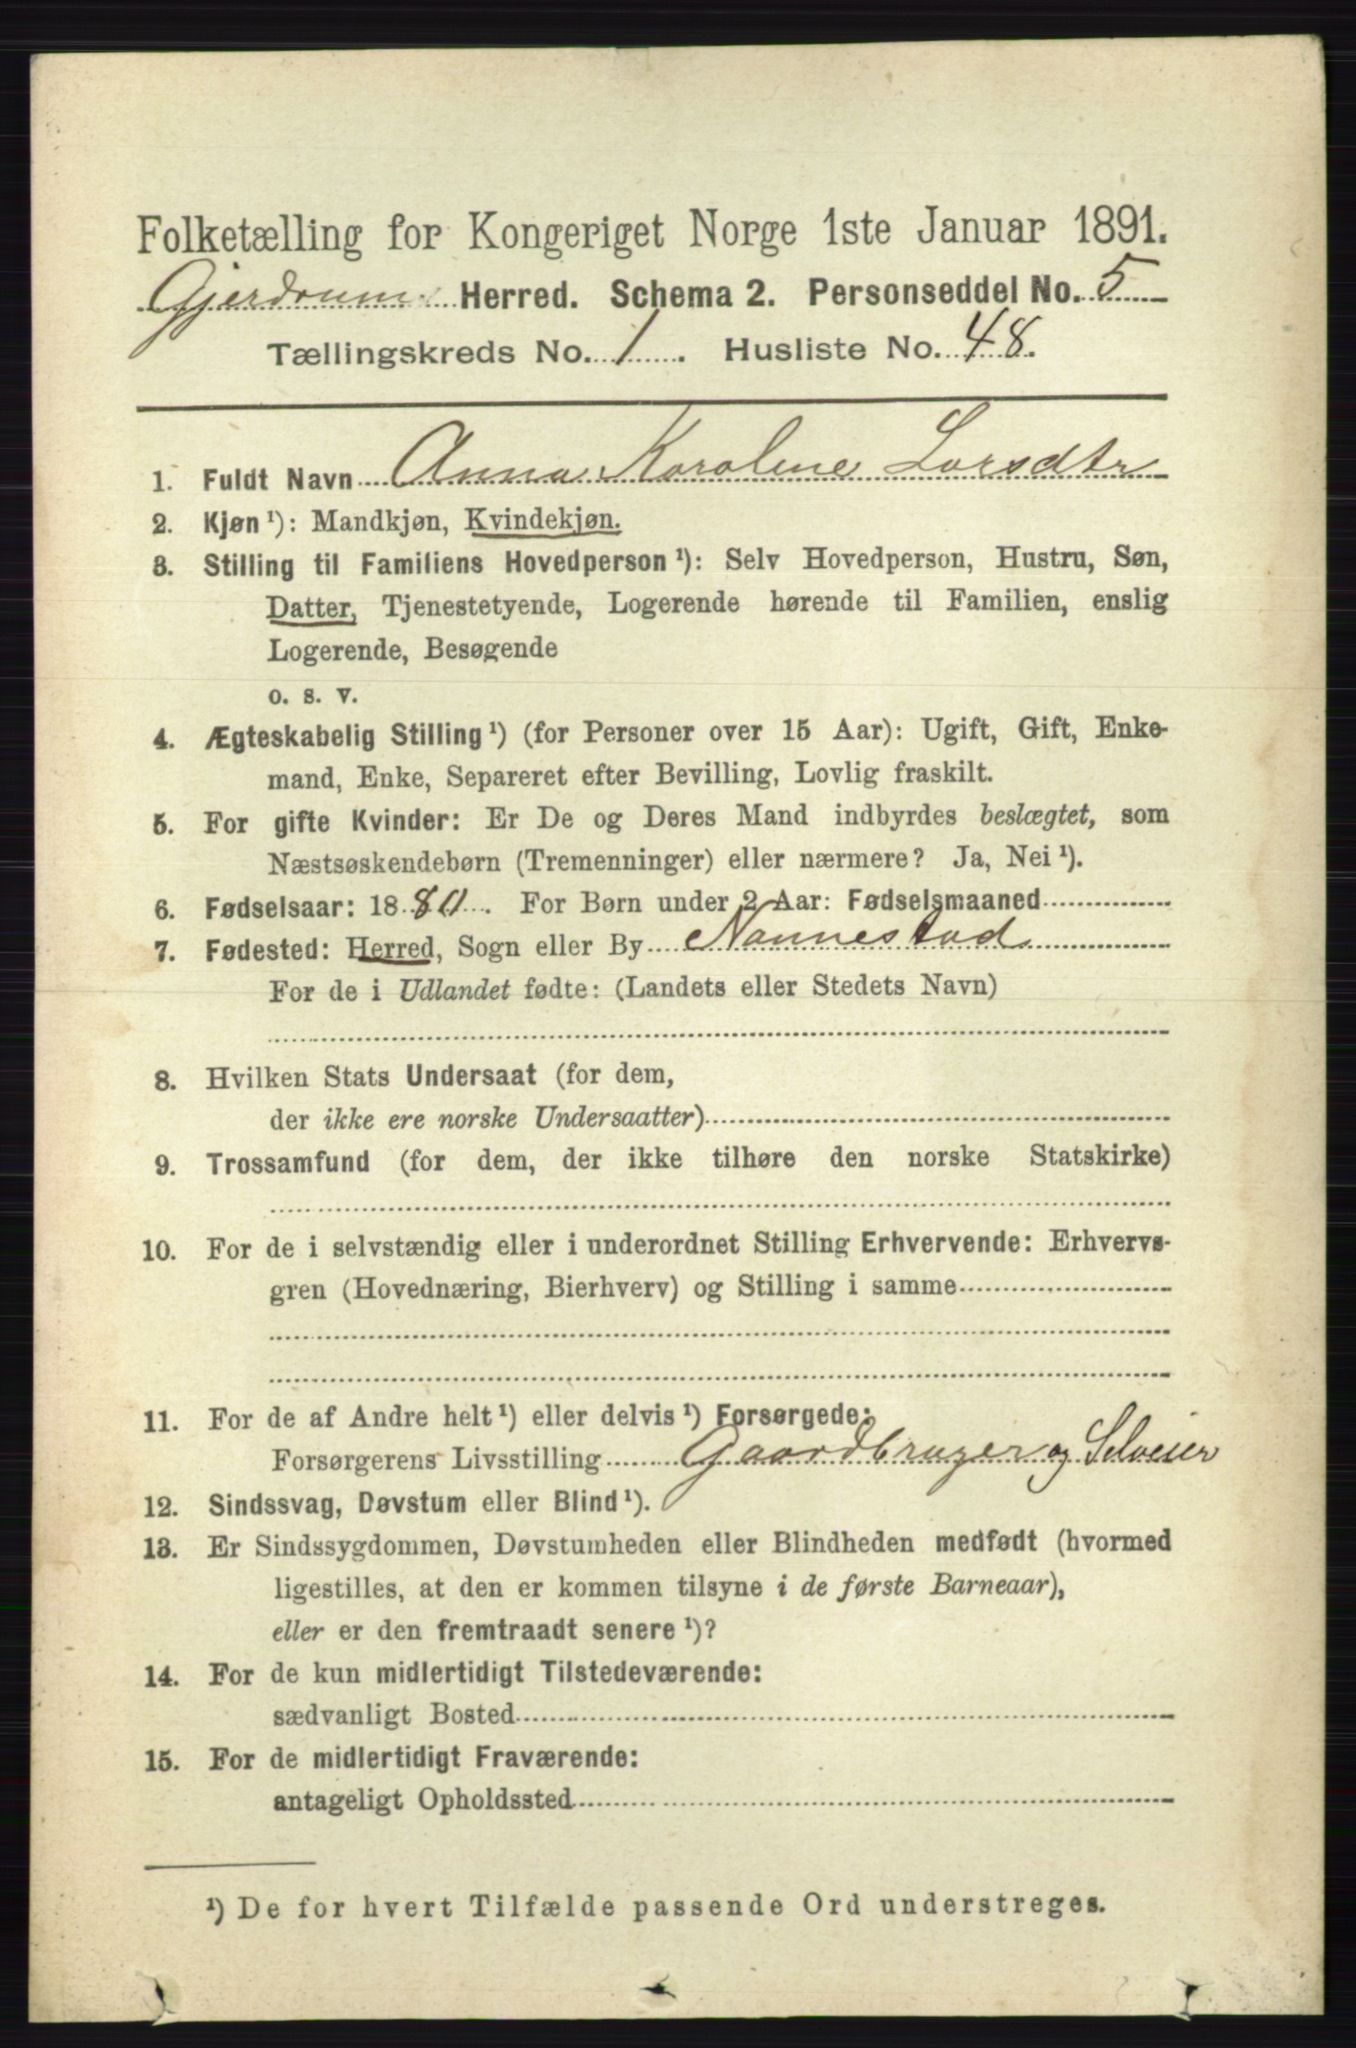 Folketælling for Kongeriget Norge 1ste Januar 1891.
Gjerdrum Herred. Schema 2. Personseddel No. 5
Tællingskreds No. 1. Husliste No. 48.
1. Fuldt Navn Anna Karoline Larsdtr
2. Kjøn ¹): Mandkjøn, Kvindekjøn.
3. Stilling til Familiens Hovedperson ¹): Selv Hovedperson, Hustru, Søn,
Datter, Tjenestetyende, Logerende hørende til Familien, enslig
Logerende, Besøgende
o. s. v.
4. Ægteskabelig Stilling ¹) (for Personer over 15 Aar): Ugift, Gift, Enke-
mand, Enke, Separeret efter Bevilling, Lovlig fraskilt.
5. For gifte Kvinder: Er De og Deres Mand indbyrdes beslægtet, som
Næstsøskendebørn (Tremenninger) eller nærmere? Ja, Nei ¹).
6. Fødselsaar: 1880. For Børn under 2 Aar: Fødselsmaaned
7. Fødested: Herred, Sogn eller By Nannestad
For de i Udlandet fødte: (Landets eller Stedets Navn)
8. Hvilken Stats Undersaat (for dem,
der ikke ere norske Undersaatter)
9. Trossamfund (for dem, der ikke tilhøre den norske Statskirke)
10. For de i selvstændig eller i underordnet Stilling Erhvervende: Erhvervs-
gren (Hovednæring, Bierhverv) og Stilling i samme
11. For de af Andre helt ¹) eller delvis ¹) Forsørgede:
Forsørgerens Livsstilling Gaardbruger og Selveier
12. Sindssvag, Døvstum eller Blind ¹).
13. Er Sindssygdommen, Døvstumheden eller Blindheden medfødt (hvormed
ligestilles, at den er kommen tilsyne i de første Barneaar),
eller er den fremtraadt senere ¹)?
14. For de kun midlertidigt Tilstedeværende:
sædvanligt Bosted
15. For de midlertidigt Fraværende:
antageligt Opholdssted
¹) De for hvert Tilfælde passende Ord understreges.